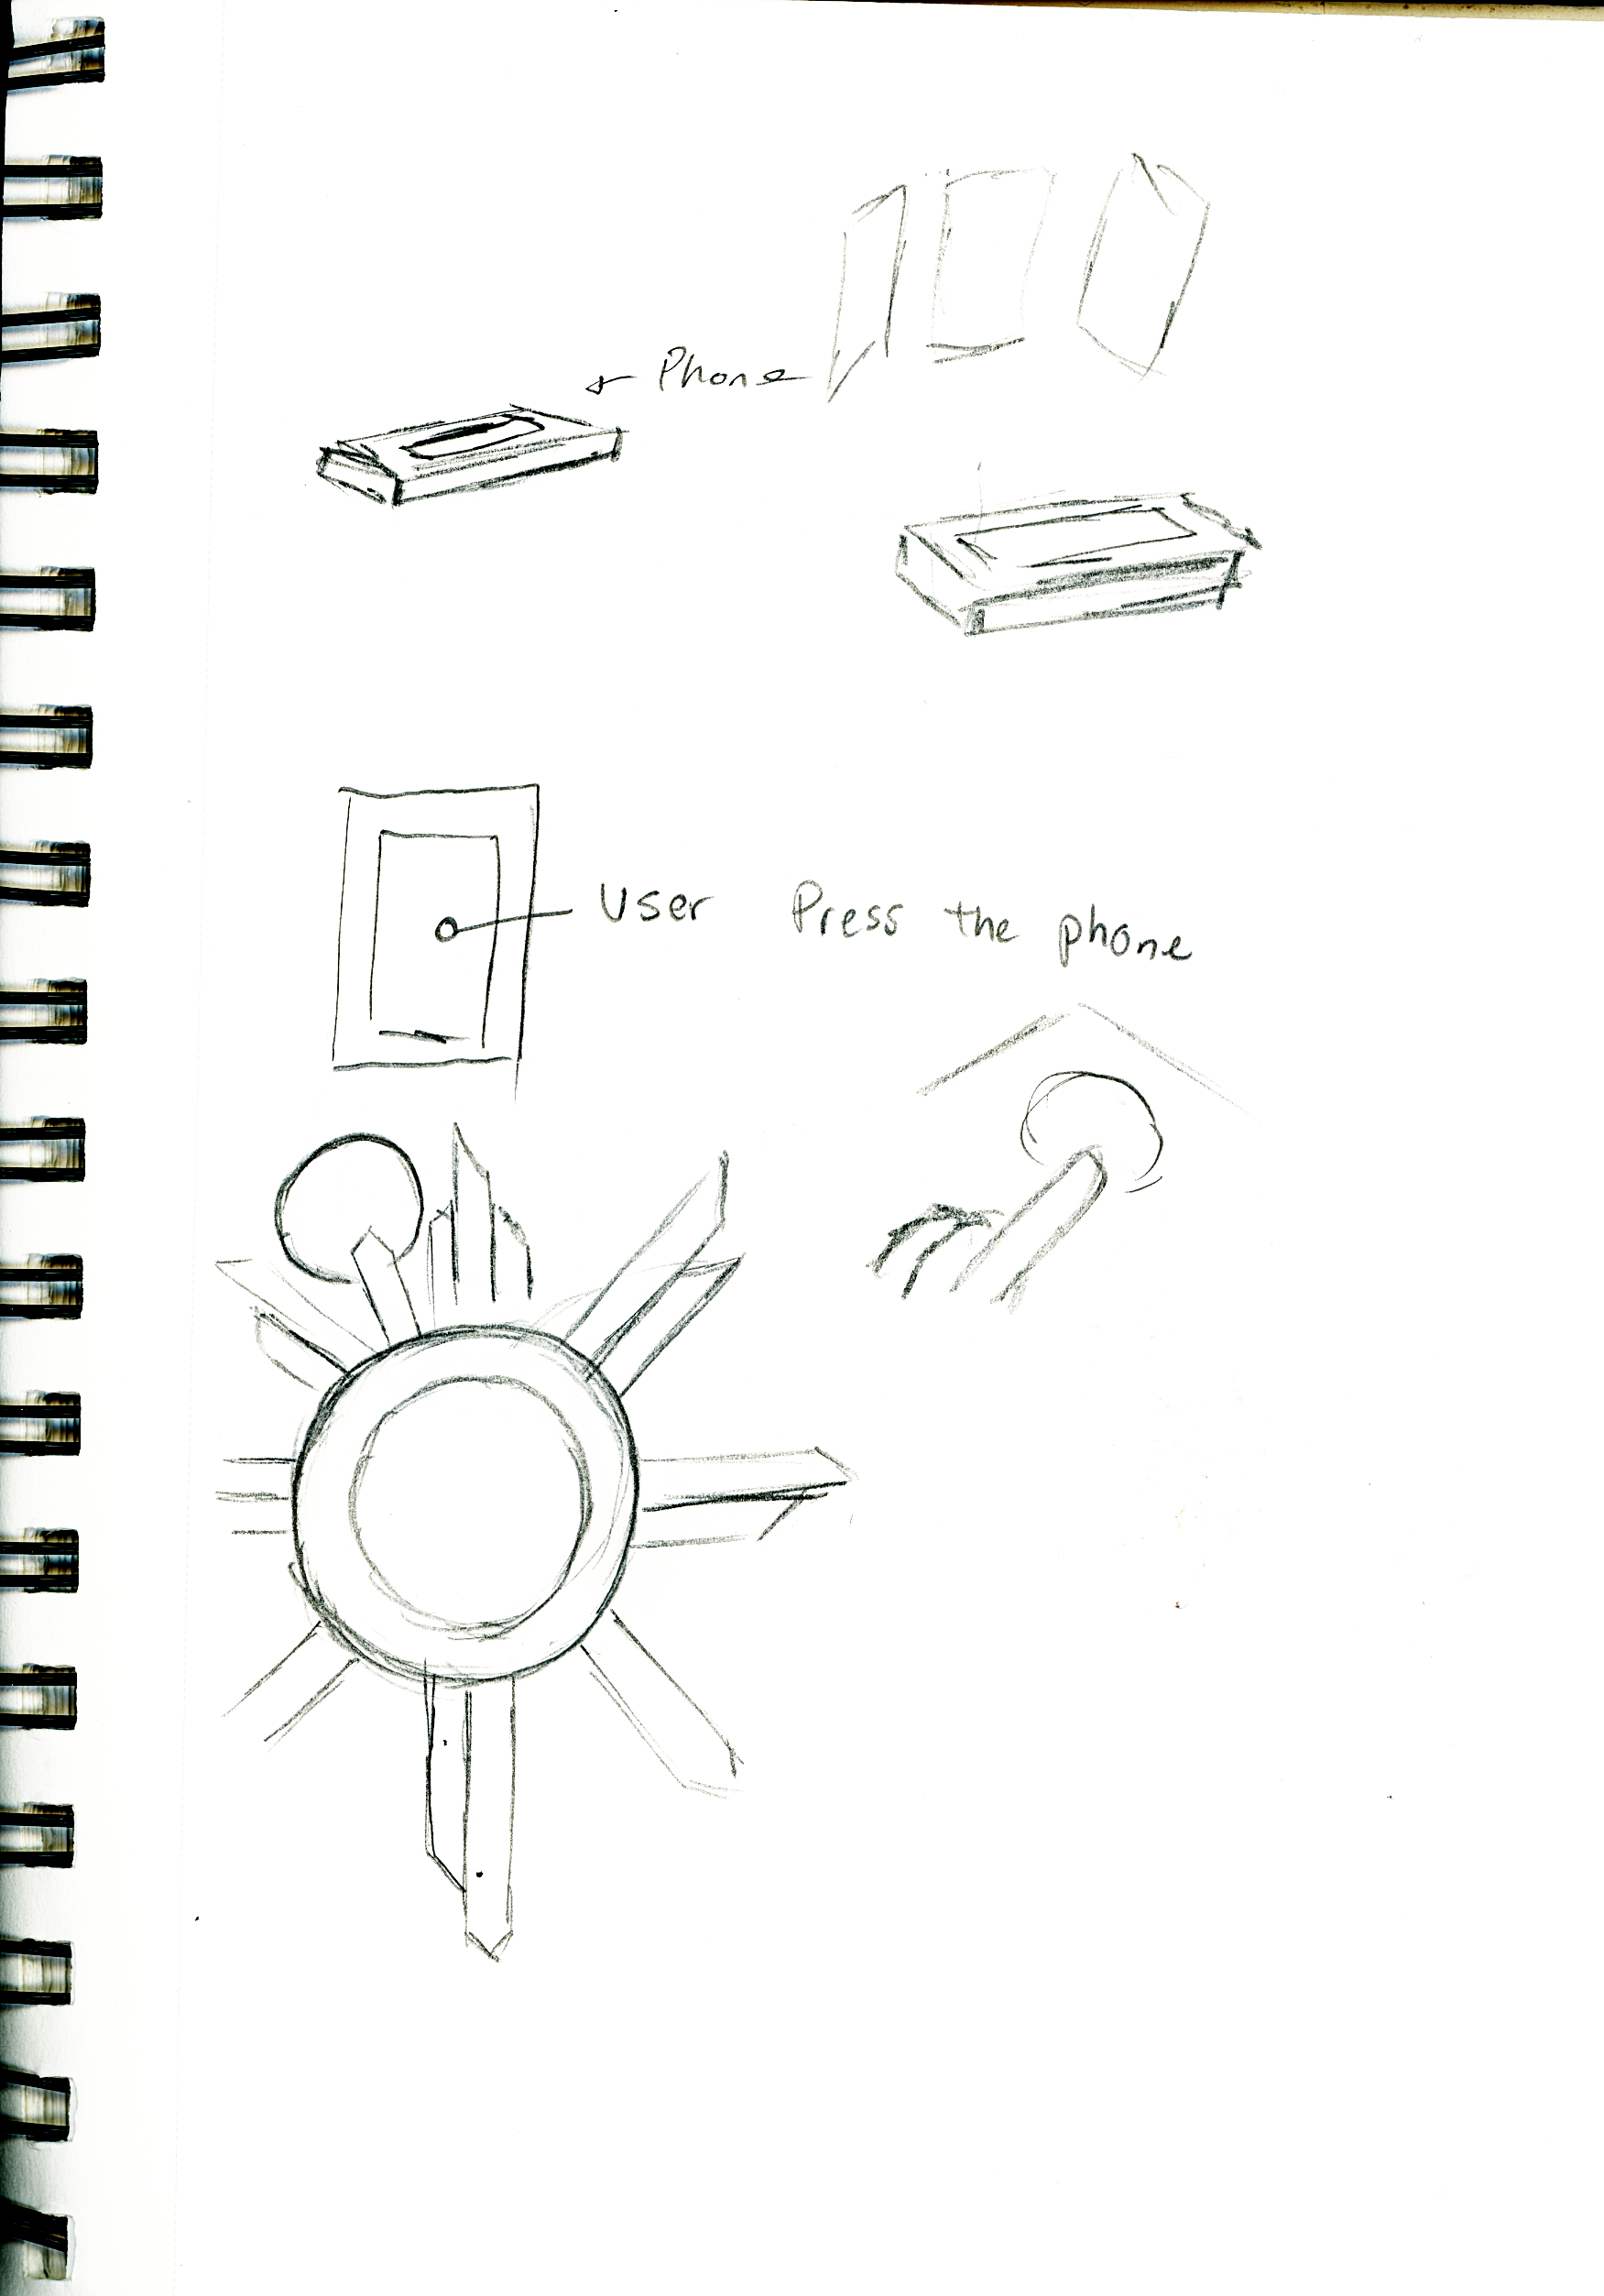 Phone
User Press the phone